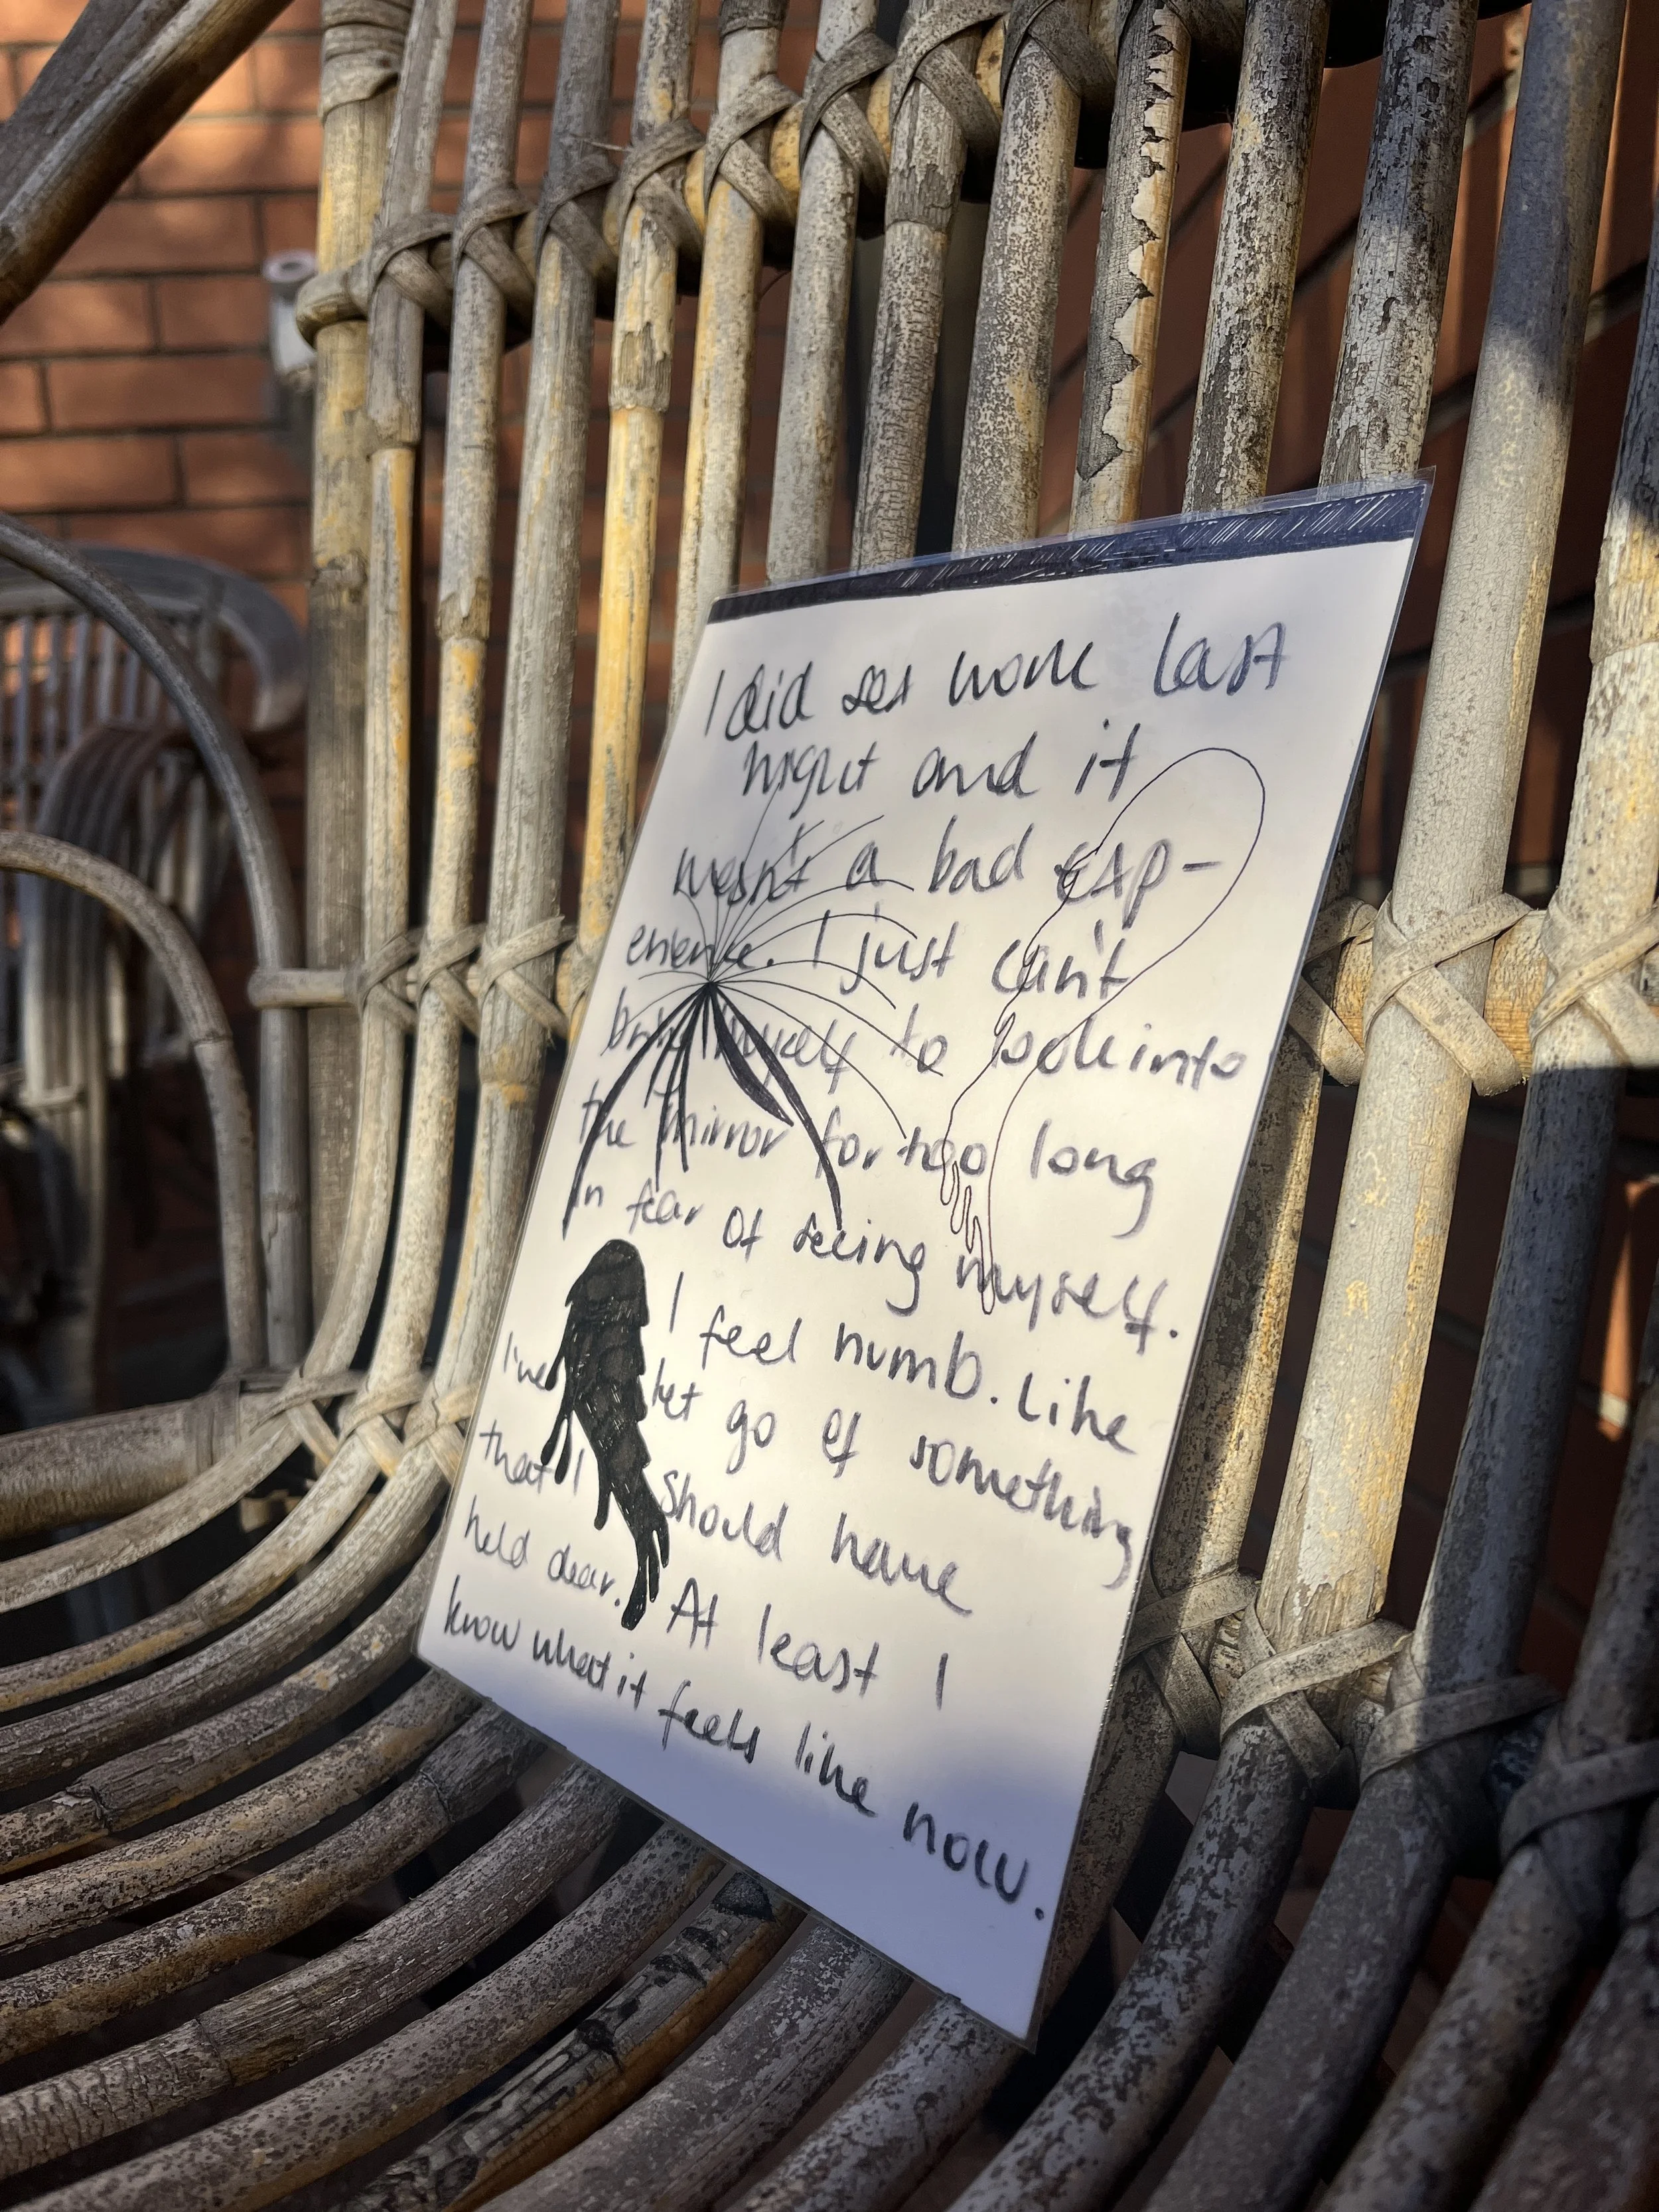 I did sex work last
night and it
wasn't a bad exp-
erience. I just can't
bring myself to look into
the mirror for too long
in fear of seeing myself.
I feel numb. Like
I've let go of something
that I should have
held dear. At least I
know what it feels like now.